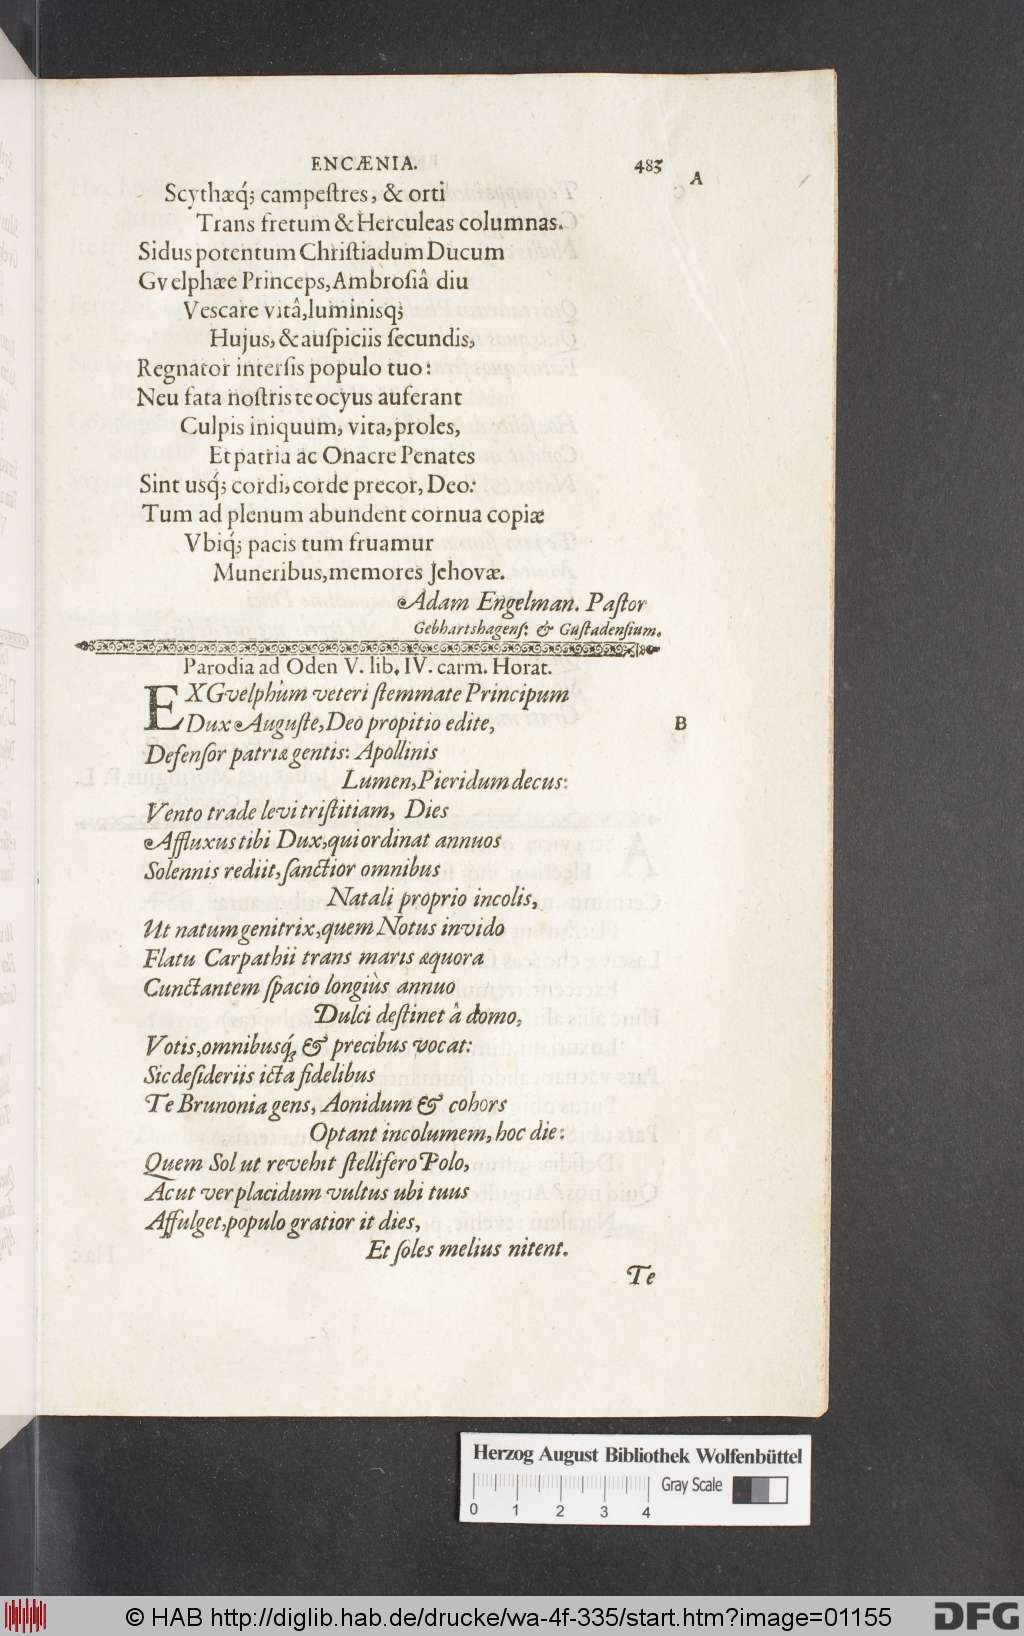 ENCÆNIA. 483
A
Scythæq́; campeſtres, & orti
Trans fretum & Herculeas columnas.
Sidus potentum Chriſtiadum Ducum
Gvelphæe Princeps, Ambroſiâ diu
Veſcare vitâ, luminisq́;
Hujus, & auſpiciis ſecundis,
Regnator interſis populo tuo:
Neu fata noſtris te ocyus auferant
Culpis iniquum, vita, proles,
Et patria ac Onacre Penates
Sint usq́; cordi, corde precor, Deo:
Tum ad plenum abundent cornua copiæ
Vbiq́; pacis tum fruamur
Muneribus, memores Jehovæ.
Adam Engelman. Paſtor
Gebhartshagenſ: & Guſtadenſium.
Parodia ad Oden V. lib. IV. carm. Horat.
EX Gvelphûm veteri ſtemmate Principum
Dux Auguſte, Deo propitio edite,
B
Defenſor patriæ gentis: Apollinis
Lumen, Pieridum decus:
Vento trade levi triſtitiam, Dies
Affluxus tibi Dux, qui ordinat annuos
Solennis rediit, ſanctior omnibus
Natali proprio incolis,
Ut natum genitrix, quem Notus invido
Flatu Carpathii trans maris æquora
Cunctantem ſpacio longiùs annuo
Dulci deſtinet â domo,
Votis, omnibusq́; & precibus vocat:
Sic deſideriis icta fidelibus
Te Brunonia gens, Aonidum & cohors
Optant incolumem, hoc die:
Quem Sol ut revehit ſtellifero Polo,
Ac ut ver placidum vultus ubi tuus
Affulget, populo gratior it dies,
Et ſoles melius nitent.
Te
Herzog August Bibliothek Wolfenbüttel
Gray Scale
0 1 2 3 4
© HAB http://diglib.hab.de/drucke/wa-4f-335/start.htm?image=01155
DFG